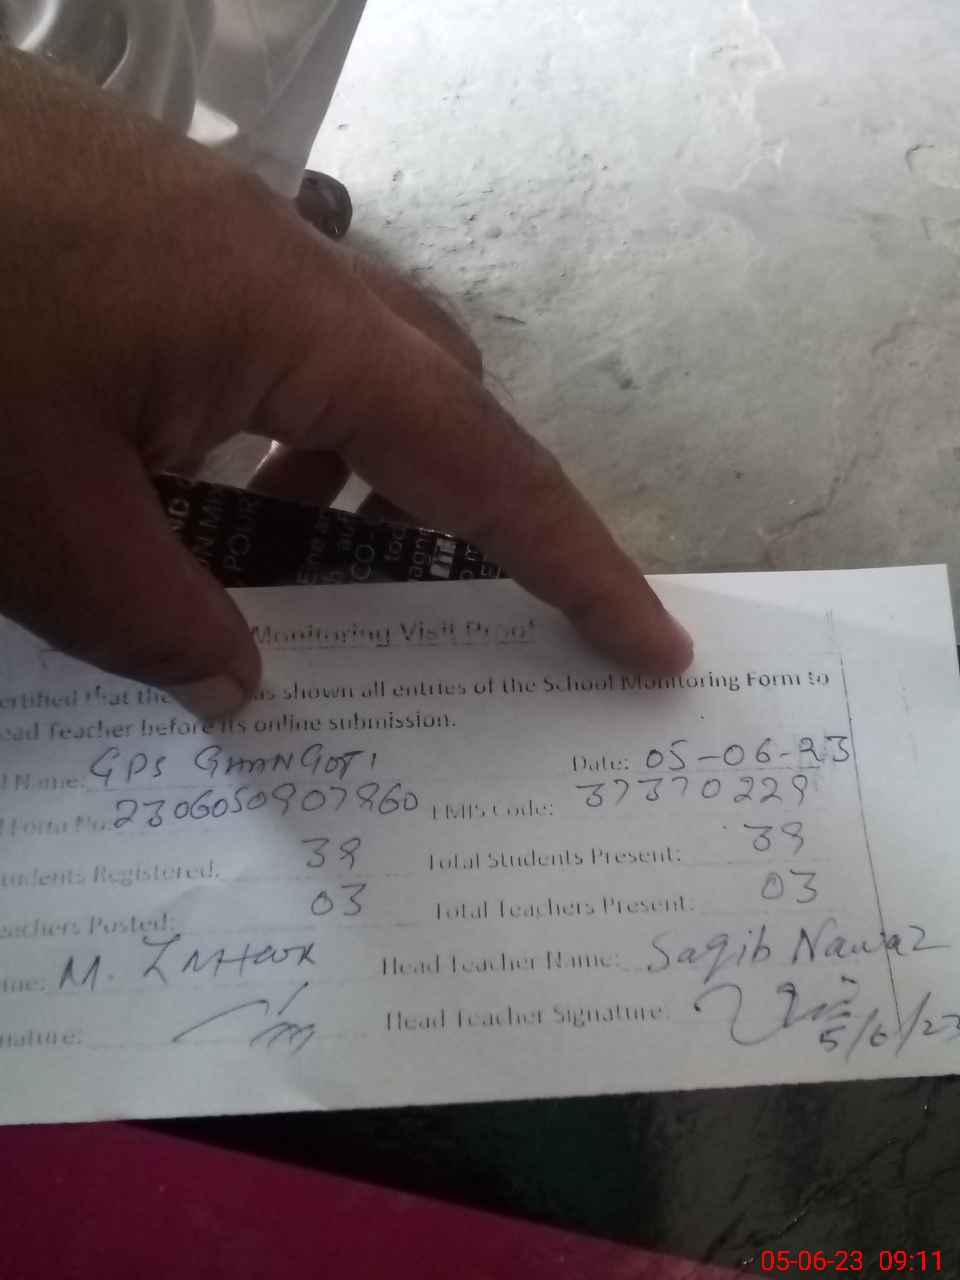 ND
ON MI
POUR
CO-
Monitoring Visit Proof
ertified that the as shown all entries of the School Monitoring Form to
ead Teacher before its online submission.
l Name: GPS GHANGOTI Date: 05-06-23
Form No: 2306050907860 EMIS Code: 37370229
tudents Registered: 39 Total Students Present: 39
eachers Posted: 03 Total Teachers Present: 03
me: M. Head Teacher Name: Saqib Nawaz
nature: Head Teacher Signature:
5/6/23
05-06-23 09:11